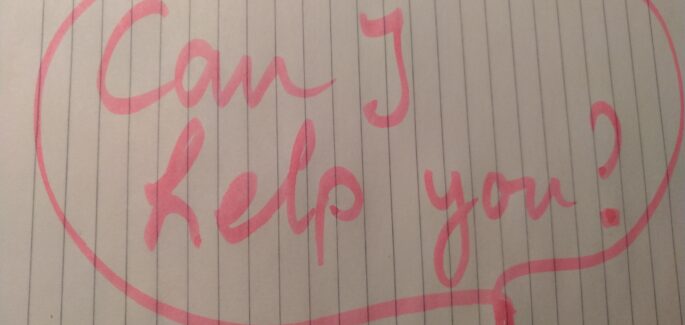 Can I
help you?